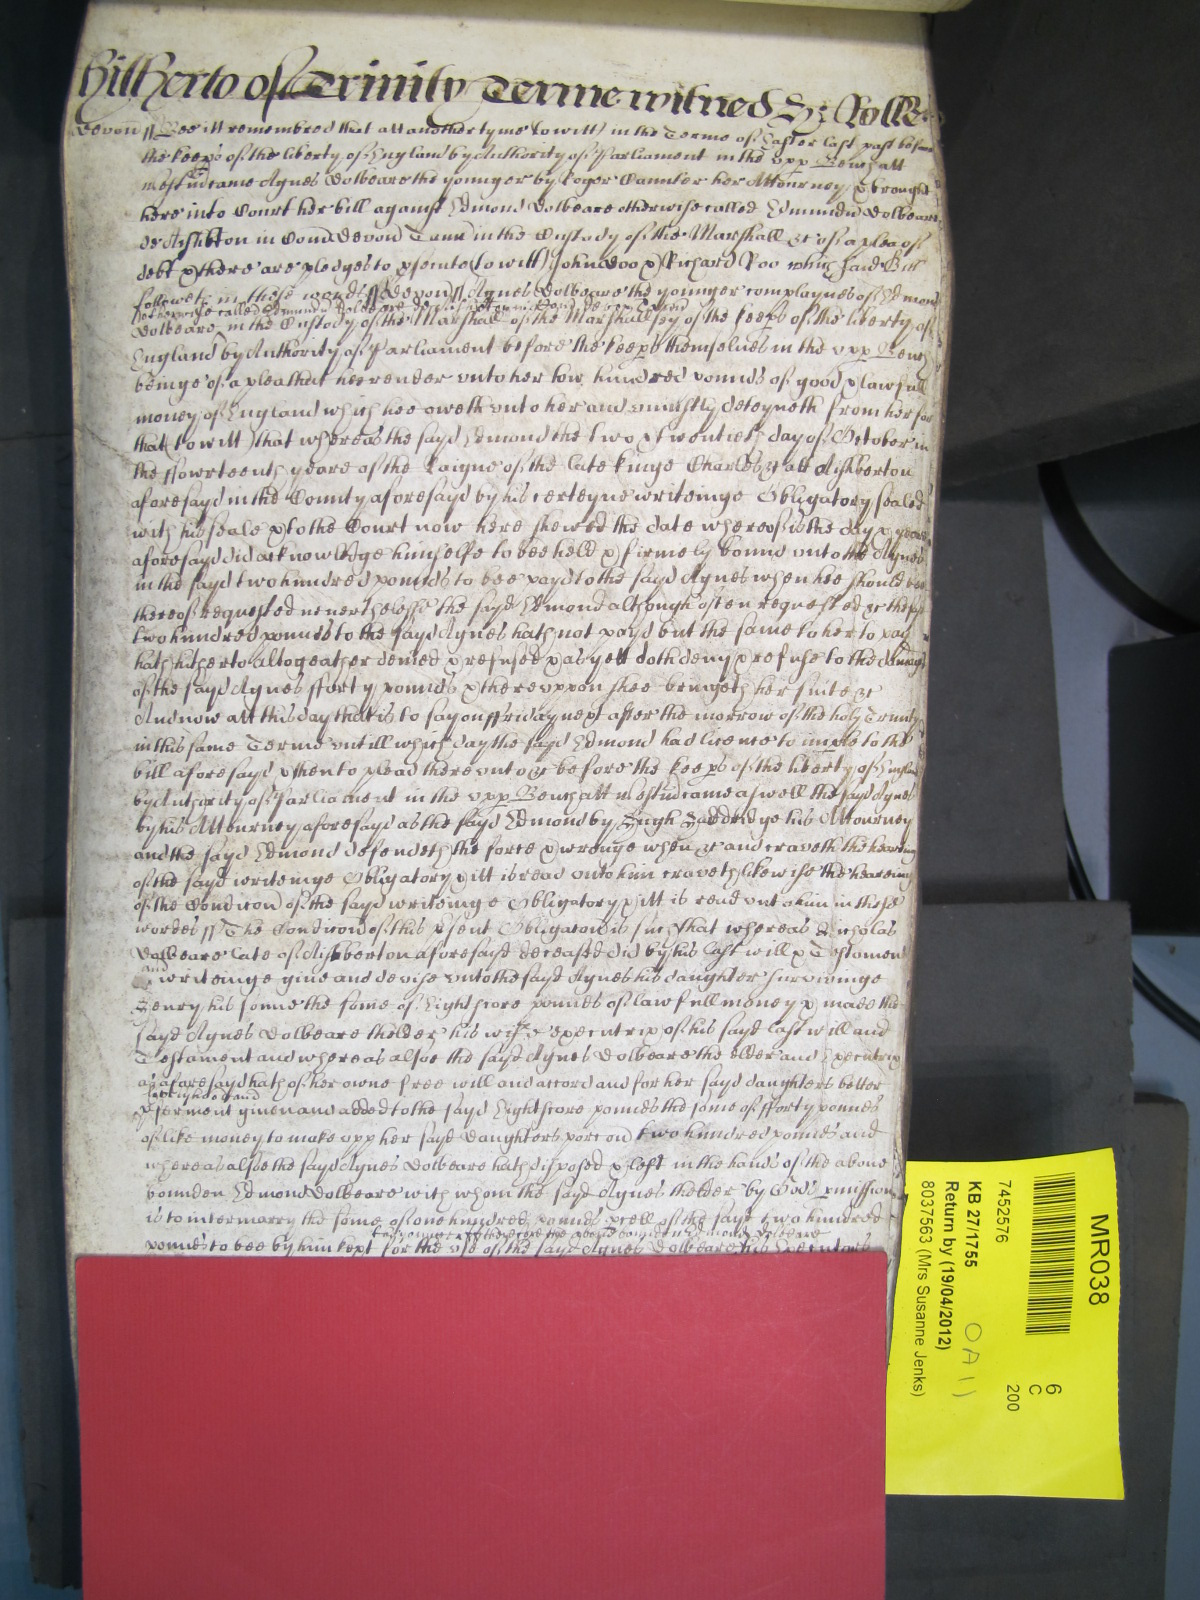 Hitherto of Trinity Terme witnes Hy: Rolle
Devon ss Bee itt remembred that att another tyme (to witt) in the Terme of Easter last past before
the keeps of the liberty of England by Authority of Parliament in the upp Bench att
westm came Agnes Dolbeare the younger by Roger Caunter her Attourney & brought
here into Court her bill against Edmond Dolbeare otherwise called Edmundu Dolbeare
de Aishbton in Com Devon Tann in the Custody of the Marshall &c of a plea of
debt & there are pledges to psente (to witt) John Doo & Richard Roo which said Bill
followeth in these wordes ss Devon ss Agnes Dolbeare the younger complaynes of Edmond
otherwise called Edmundu Dolbeare de
Dolbeare in the Custody of the Marshall of the Marshallsey of the keeps of the liberty of
England by Authority of Parliament before the keeps themselves in the upp Bench
beinge of a plea that hee render unto her two hundred pounds of good & lawfull
money of England which hee oweth unto her and uniustly deteyneth from her for
that (to witt) that whereas the sayd Edmond the two & twentieth day of October in
the ffowrteenth yeare of the Raigne of the late kinge Charles &c att Aishberton
aforesayd in the County aforesayd by his certeyne writeinge Obligatory sealed
with his seale & to the Court now here shewed the date whereof is the day & yeare
aforesayd did acknowledge himselfe to bee held & firmely bound unto the Agnes
in the sayd two hundred pounds to bee payd to the sayd Agnes when hee should bee
thereof requested neverthelesse the sayd Edmond although often requested &c the sayd
two hundred pounds to the sayd Agnes hath not payd but the same to her to pay
hath hitherto altogeather denied & refused & as yett doth deny & refuse to the damage
of the sayd Agnes fforty pounds & thereuppon shee bringeth her suite &c
And now att this day that is to say on ffriday next after the morrow of the holy Trinity
in this same Terme untill which day the sayd Edmond had licence to imple to the
bill aforesayd & then to plead thereunto &c before the keeps of the liberty of England
by Authority of Parliament in the upp Bench att westm came aswell the sayd Agnes
by his Attourney aforesayd as the sayd Edmond by Hugh his Attourney
and the sayd Edmond defendeth the force & wronge when &c and craveth the hearing
of the sayd writeinge Obligatory & itt is read unto him craveth likewise the heareing
of the Condicon of the sayd writeinge Obligatory & itt is read unto him in these
wordes ss The Condicon of this psent Obligacon is such that whereas Nicholas
Dolbeare late of Aishberton aforesayd deceased did by his last will & Testament
in writeinge give and devise unto the sayd Agnes his daughter survivinge
Henry his sonne the some of Eight score pounds of lawfull money & made the
sayd Agnes Dolbeare thelder his wife & executrix of his sayd last will and
Testament and whereas alsoe the sayd Agnes Dolbeare the elder and Executrix
as aforesayd hath of her owne free will and accord and for her sayd daughters better
livelyhood and
pferment given and added to the sayd Eight score pounds the some of fforty pounds
of like money to make upp her sayd daughters porcon two hundred pounds and
whereas alsoe the sayd Agnes Dolbeare hath disposed & left in the hands of the above
bounden Edmond Dolbeare with whom the sayd Agnes thelder by Gods pmission
is to intermarry the some of one hundred pounds pcell of the sayd two hundred
if therefore the above bounden Edmond Dolbeare
pounds to bee by him kept for the use of the sayd Agnes Dolbeare his Executors
MR038
7452576
KB 27/1755
Return by (19/04/2012)
8037563 (Mrs Susanne Jenks)
OA11
6
C
200